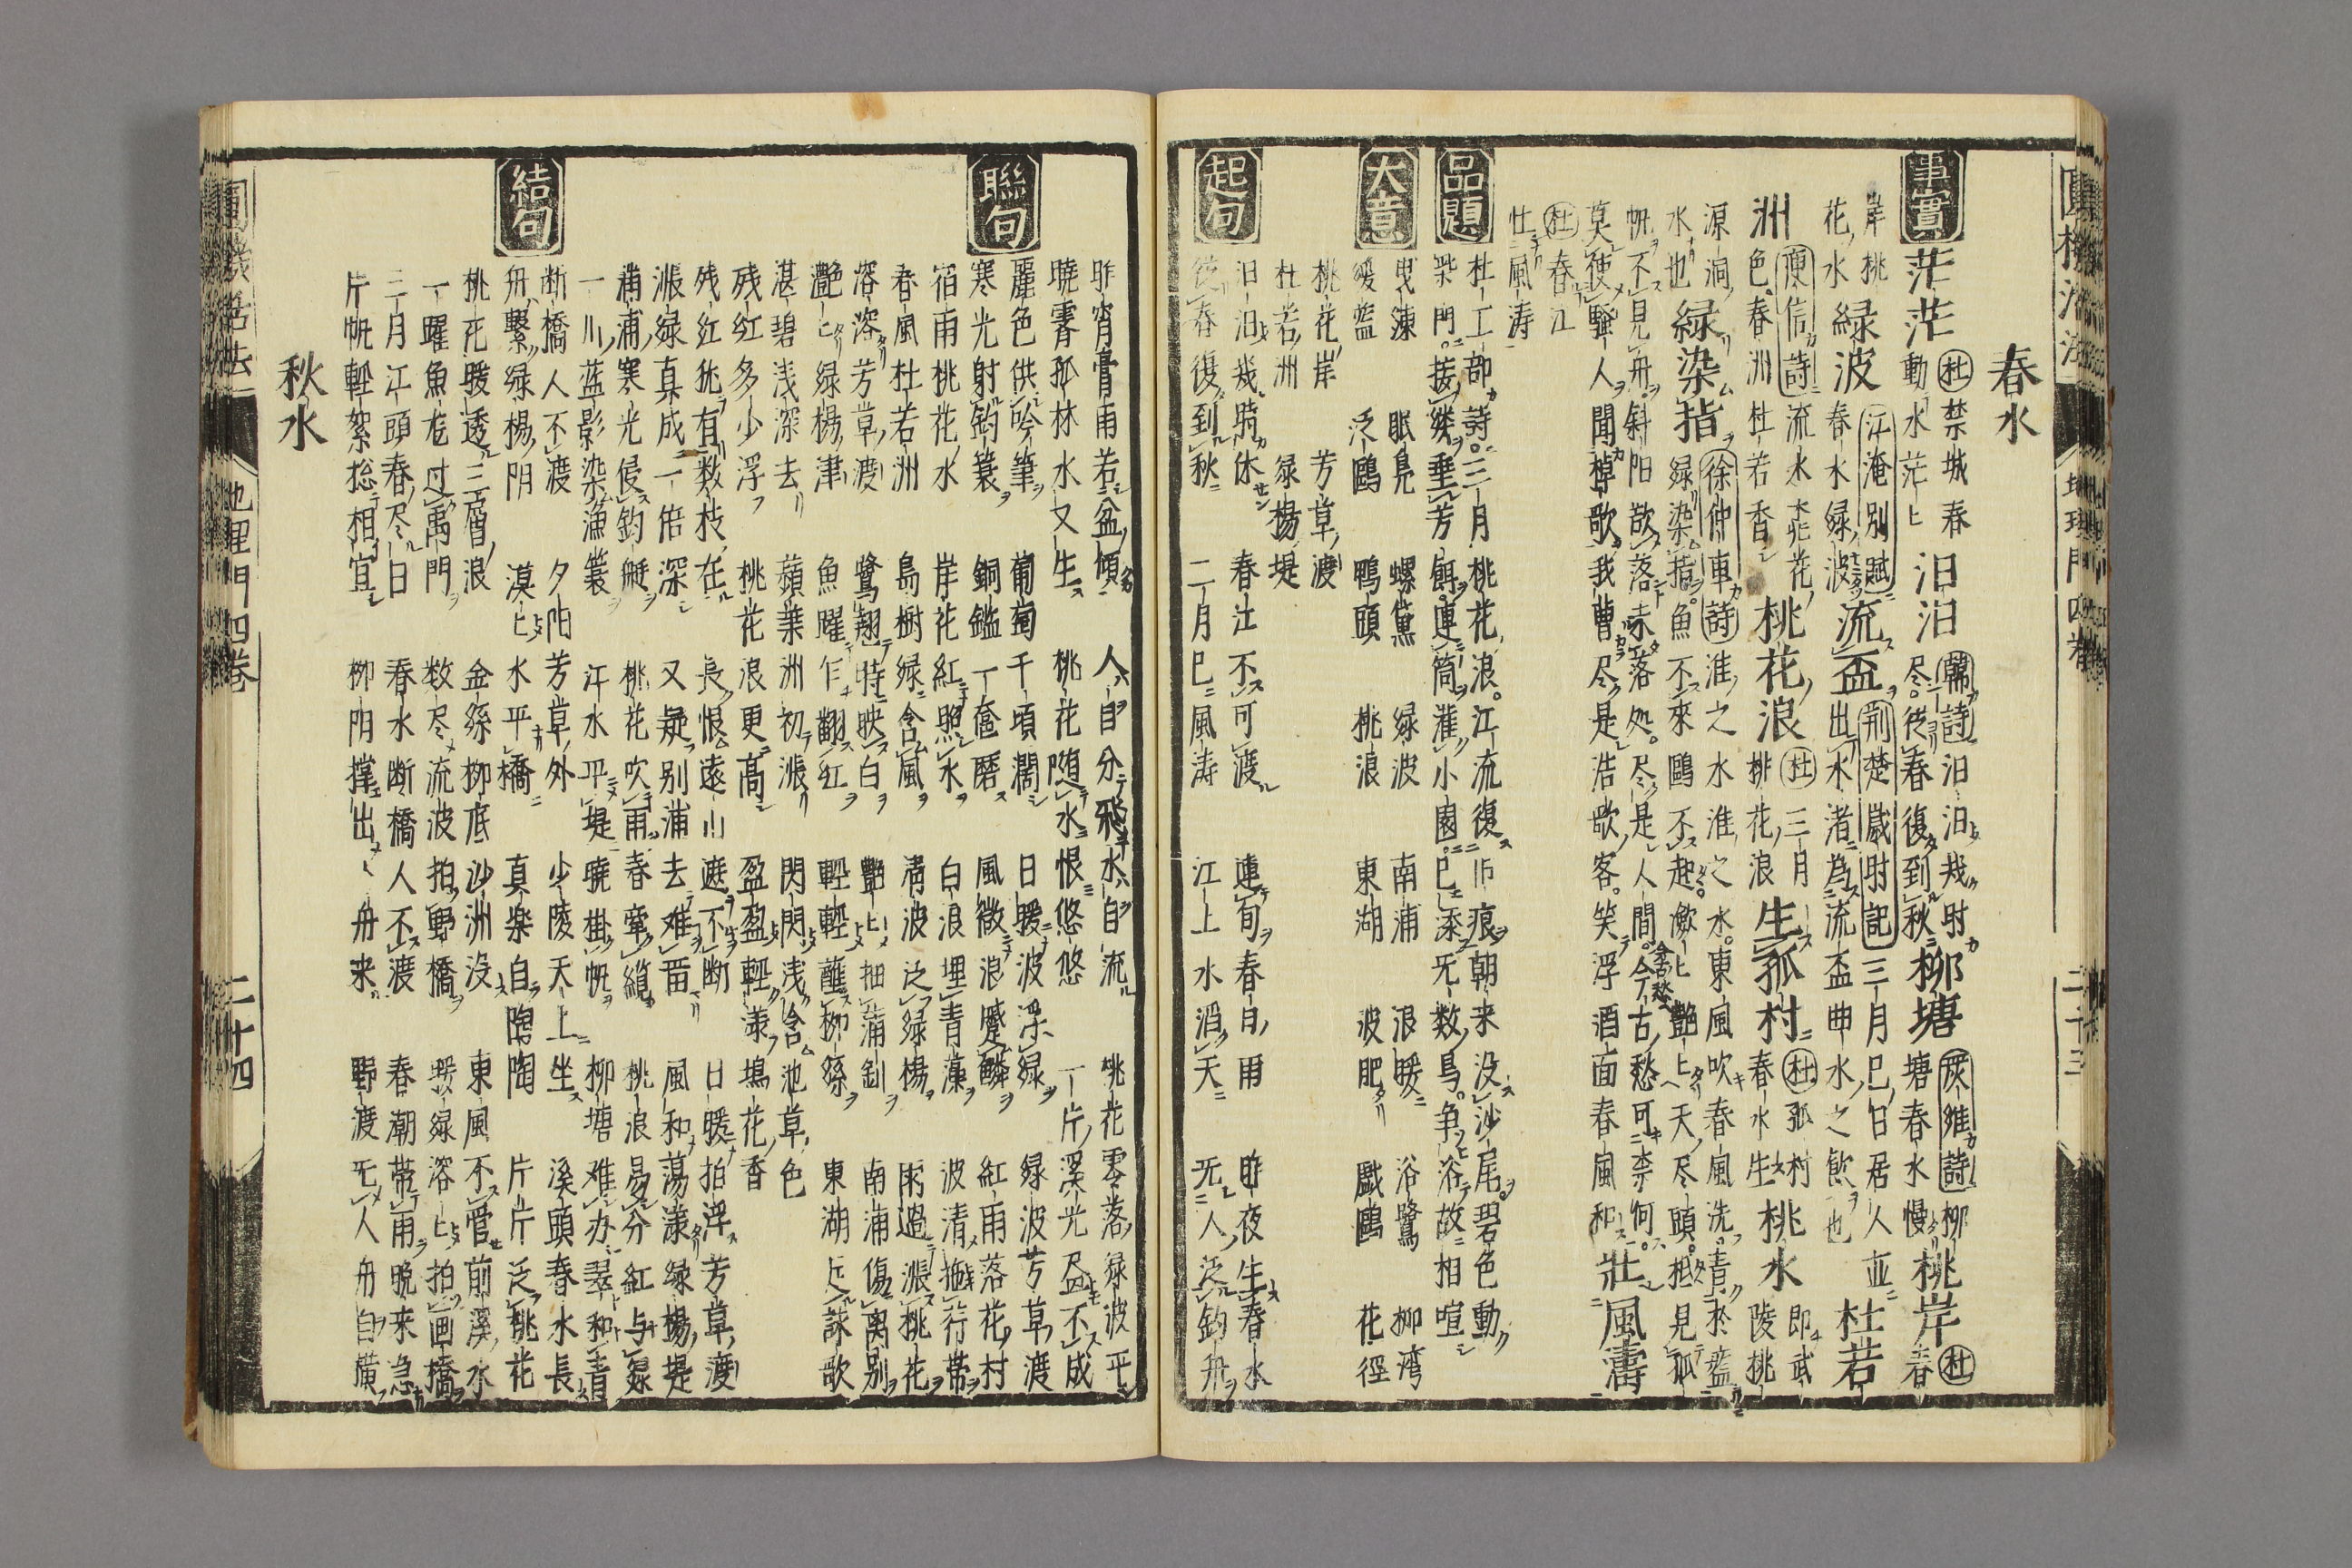 春水
事實
茫茫 杜禁城春動水茫ヒ 汨汨 韓詩汨汨幾时尽。從春復到秋 柳塘 維詩柳塘春水慢 桃岸 杜春
岸桃花水 緑波 江淹別賦春水緑波 流盃 荆楚歳时記三月巳日居人並出水渚為流盃曲水之飲也 杜若
洲 庾信詩流水桃花色春洲杜若香 桃花浪 杜三月桃花浪 生孤村 杜孤村春水生 桃水 即武陵桃
源洞水也 緑染指 徐仲車詩淮之水淮之水。東風吹春風洗。青於藍緑染指。魚不來鷗不起。瀲ヒ艶ヒ天尽頭。抵見孤
帆不見舟。斜阳欲落未落処。尽是人間今古愁可柰何。
莫使騒人聞棹歌我曹尽是浩歌客。笑浮酒面春風和 壯風濤
杜春江
壮風涛
品題
杜工部詩。三月桃花浪。江流復旧痕朝来没沙尾。碧色動
柴門。接縷垂芳餌。連筒灌小園。已添无数鳥。争浴故相喧
大意
曳凍 眠鳧 螺黛 緑波 南浦 浪暖 浴鷺 柳湾
暖藍 泛鷗 鴨頭 桃浪 東湖 波肥 戲鷗 花徑
桃花岸 芳草渡
杜若洲 緑楊堤
起句
汨汨幾時休 春江不可渡 連旬春日雨 昨夜生春水
從春復到秋 二月已風涛 江上水滔天 无人泛釣舟
昨宵膏雨若盆傾 人自分飛水自流 桃花零落緑波平
曉霽孤林水又生 桃花随水恨悠悠 一片溪光尽不成
聯句
麗色供吟筆 葡萄千頃濶 日暖波深緑 緑波芳草渡
寒光射釣簑 銅鑑一奩磨 風微浪蹙鱗 紅雨落花村
宿雨桃花水 岸花紅照水 白浪埋青藻 波清拖荇帯
春風杜若洲 島樹緑含風 清波泛緑楊 雨過漲桃花
溶溶芳草渡 鷺翹時映白 艶ヒ抽蒲剣 南浦傷离別
灔ヒ緑楊津 魚躍乍翻紅 輕輕蘸柳絲 東湖足詠歌
湛碧浅深去 蘋葉洲初漲 閃閃浅含池草色
残紅多少浮 桃花浪更高 盈盈輕漾塢花香
残红猶有数枝在 長恨遠山遮不断 日暖拍浮芳草渡
漲緑真成一倍深 又疑别浦去难留 風和蕩漾緑楊堤
浦浦寒光侵釣艇 桃花吹雨春牽纜 桃浪易分紅与緑
一川蓝影染漁簑 汗水平堤曉掛帆 柳塘难办翠和青
結句
断橋人不渡 夕阳芳草外 少陵天上坐 溪頭春水長
舟繋緑楊阴 漠ヒ水平橋 真楽自陶陶 片片泛桃花
桃花暖透三層浪 金絲柳底沙洲没 東風不管前溪水
一躍魚龙过禹門 数尽流波拍野橋 溶ヒ拍画橋
三月江頭春尽日 春水断橋人不渡 春潮帯雨晩来急
片帆輕絮総相宜 柳阴撑出丶舟来 野渡无人舟自橫
秋水
圓機活法 地理門四巻 二十三
圓機活法 地理門四巻 二十四